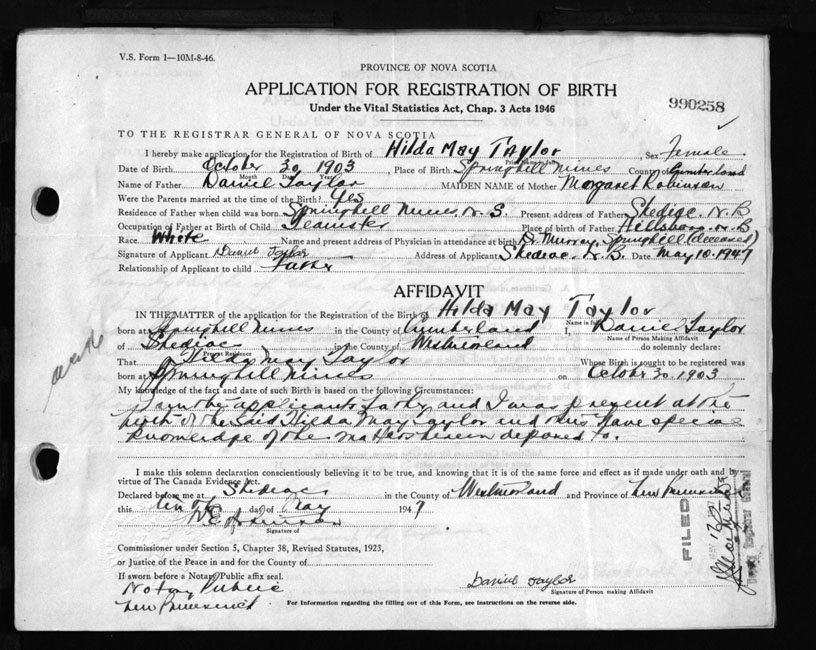 V.S. Form 1—10M-8-46.
PROVINCE OF NOVA SCOTIA
APPLICATION FOR REGISTRATION OF BIRTH
Under the Vital Statistics Act, Chap. 3 Acts 1946
990258
TO THE REGISTRAR GENERAL OF NOVA SCOTIA
I hereby make application for the Registration of Birth of Hilda May Taylor, Sex Female
Date of Birth October 30, 1903, Place of Birth Springhill Mines County of Cumberland
Month Day Year
Name of Father Daniel Taylor MAIDEN NAME of Mother Margaret Robinson
Were the Parents married at the time of the Birth? Yes
Residence of Father when child was born Springhill Mines, N.S. Present address of Father Shediac N.B
Occupation of Father at Birth of Child Teamster Place of birth of Father Hillsboro N.B
Race White Name and present address of Physician in attendance at birth Dr Murray, Springhill (deceased)
Signature of Applicant Daniel Taylor Address of Applicant Shediac N.B. Date May 10-1947
Relationship of Applicant to child Father
AFFIDAVIT
IN THE MATTER of the application for the Registration of the Birth of Hilda May Taylor
Name in full
born at Springhill Mines in the County of Cumberland I, Daniel Taylor
Name of Person Making Affidavit
of Shediac in the County of Westmorland do solemnly declare:
Present Residence
That Hilda May Taylor Whose Birth is sought to be registered was
born at Springhill Mines on October 30, 1903
My knowledge of the fact and date of such Birth is based on the following Circumstances:
I am the applicants father and I was present at the
birth of the said Hilda May Taylor and thus have special
knowledge of the matters herein deposed to.
I make this solemn declaration conscientiously believing it to be true, and knowing that it is of the same force and effect as if made under oath and by
virtue of The Canada Evidence Act.
Declared before me at Shediac in the County of Westmorland and Province of New Brunswick
this tenth day of May 1947
Signature of
Commissioner under Section 5, Chapter 38, Revised Statutes, 1923,
or Justice of the Peace in and for the County of
If sworn before a Notary Public affix seal.
Notary Public
New Brunswick
Daniel Taylor
Signature of Person making Affidavit
For information regarding the filling out of this Form, see instructions on the reverse side.
FILED